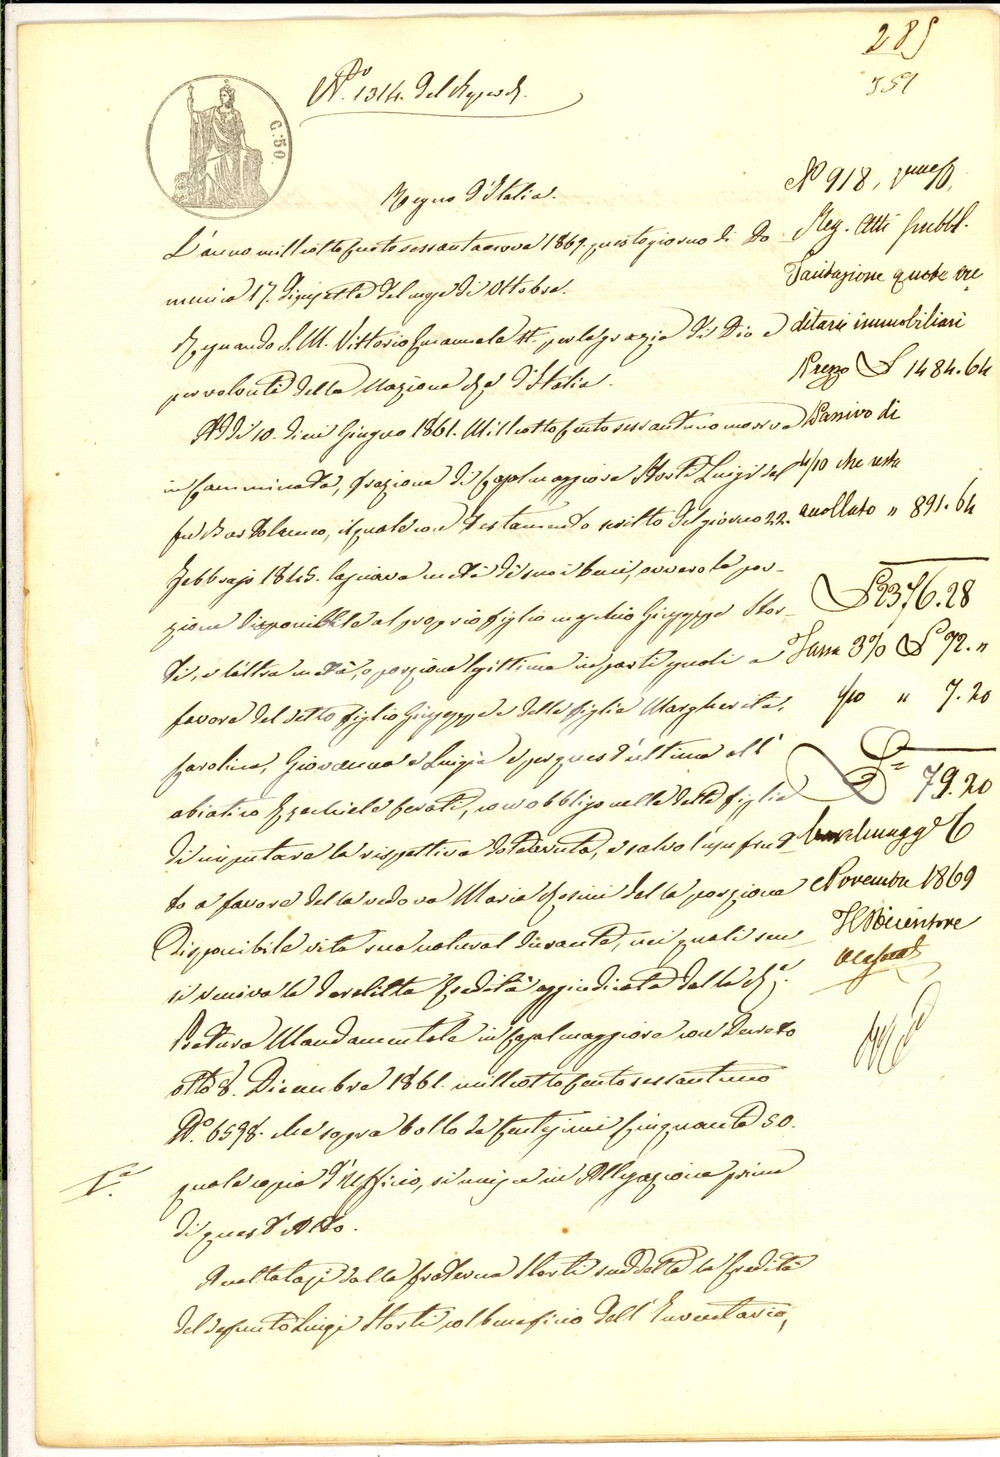 285
551
N.ro 1314. del Reperto.
C. 50.
Regno d'Italia.
L'anno milleottocentosessantanove 1869. questo giorno di Do-
menica 17. diecisette del mese di Ottobre.
Regnando S. M. Vittorio Emanuele II. per la grazia di Dio e
per volontà della Nazione Re d'Italia.
Addì 10. dieci Giugno 1861. Milleottocentosessantuno moriva
in Camminata, frazione di Casalmaggiore Storti Luigi del
fu Bartolomeo, il quale con testamento scritto del giorno 22.
Febbrajo 1845. lasciava metà di suoi beni, ovvero la por-
zione disponibile al proprio figlio maschio Giuseppe Stor-
ti, e l'altra metà, o porzione legittima in parti eguali a
favore del detto figlio Giuseppe e delle figlie Margherita,
Carolina, Giovanna e Luigia e per quest'ultima all'
abiatico Ezechiele Ferati, con obbligo nelle dette figlie
di imputare la rispettiva dote avuta, e salvo l'usufrut-
to a favore della vedova Maria Rosini della porzione
disponibile vita sua natural durante, nei quali sen-
si veniva la derelitta Eredità aggiudicata dalla R.a
Pretura Mandamentale in Casalmaggiore con Decreto
otto 8. Dicembre 1861. milleottocentosessantuno
N.o 6598. che sopra bollo da Centesimi Cinquanta 50.
I.a
quale copia d'Ufficio, si unisce in Allegazione prima
di quest'Atto.
Accettatasi dalla fraterna Storti suddetta la Eredità
del defunto Luigi Storti col beneficio dell'Inventario,
N.o 918,
Reg. Atti pubbl.
quote ere
ditarie immobiliari
Prezzo £ 1484.64
Passivo di
4/10 che resta
accollato " 891.64
£ 2376.28
Tassa 3% £ 72. "
1/10 " 7.20
£ 79.20
Casalmagg.e 6
Novembre 1869
Il Ricevitore